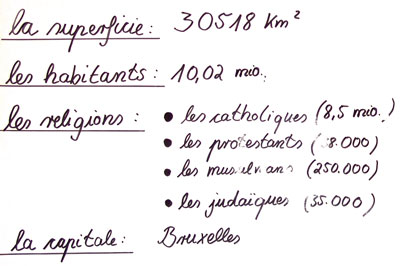 la superficie: 30518 Km²
les habitants: 10,02 mio.
les religions: • les catholiques (8,5 mio.)
• les protestants
• les musulmans (250.000)
• les judaïques (35.000)
la capitale: Bruxelles